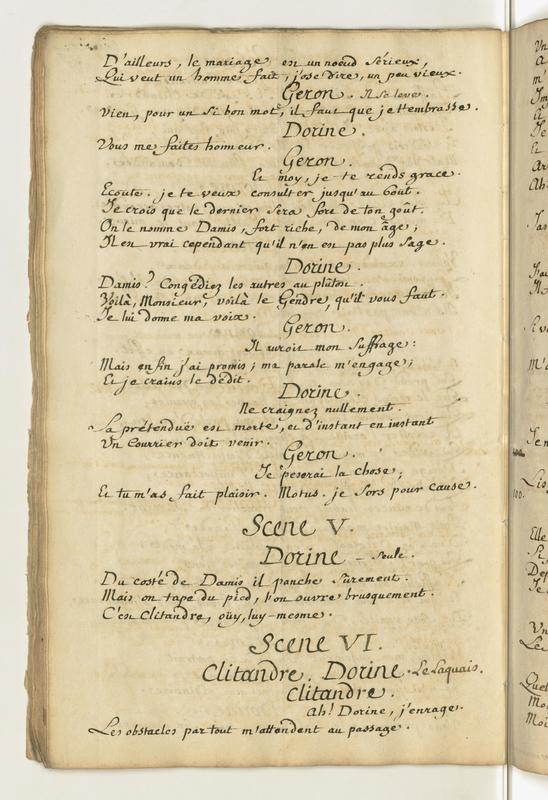 D'ailleurs, le mariage est un noeud Sérieux,
Qui veut un homme fait, j'ose dire, un peu vieux.
Geron. Il se leve.
Vien, pour un si bon mot, il faut que je t'embrasse.
Dorine.
Vous me faites honneur.
Geron.
Et moy, je te rends grace.
Ecoute. je te veux consulter jusqu'au bout.
Je crois que le dernier sera fort de ton goût.
On le nomme Damis, fort riche, de mon âge;
Il en vrai cependant qu'il n'en est pas plus sage.
Dorine.
Damis? Congediez les autres au plûtôt.
Voilà, Monsieur, voilà le Gendre, qu'il vous faut.
Je lui donne ma voix.
Geron.
Il auroit mon Suffrage:
Mais enfin j'ai promis; ma parole m'engage;
Et je crains le dédit.
Dorine.
Ne craignez nullement.
La prétendue est morte, et d'instant en instant
Un Courrier doit venir.
Geron.
Je peserai la chose;
Et tu m'as fait plaisir. Motus. je sors pour cause.
Scene V.
Dorine - seule.
Du costé de Damis il panche surement.
Mais on tape du pied, l'on ouvre brusquement.
C'est Clitandre, oüy, luy-mesme.
Scene VI.
Clitandre. Dorine. Le Laquais.
Clitandre.
Ah! Dorine, j'enrage.
Les obstacles partout m'attendent au passage.